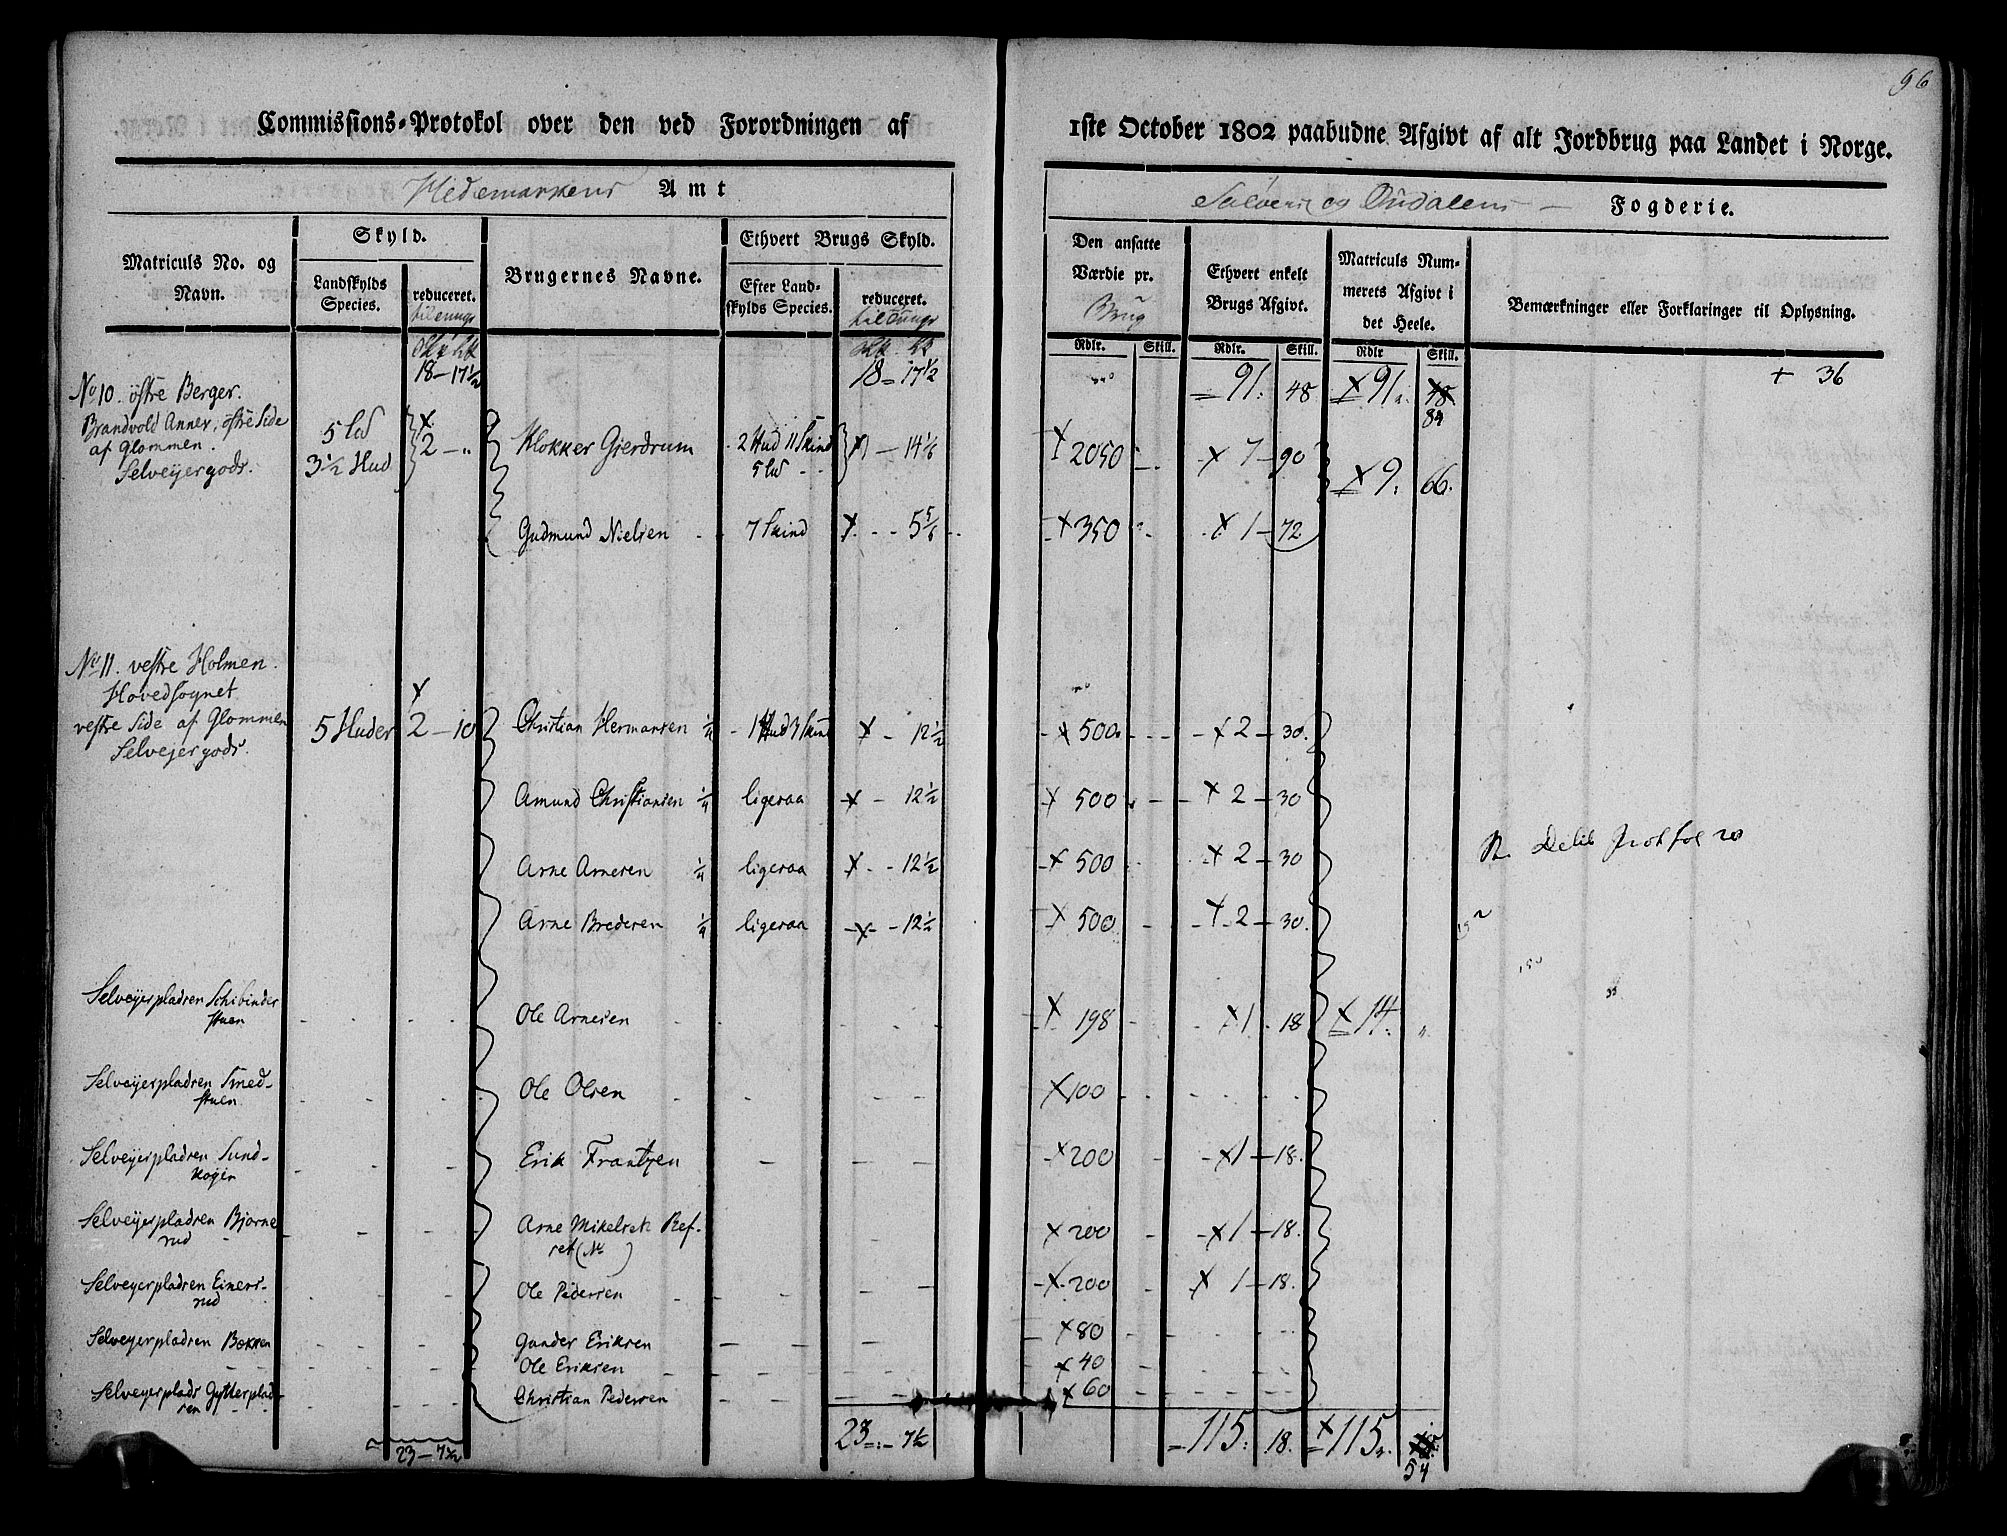 96
Commissions-Protokol over den ved Forordningen af 1ste October 1802 paabudne Afgivt af alt Jordbrug paa Landet i Norge.
Hedemarkens Amt
Soløens og Ousdalens Fogderie.
Matriculs No. og Navn.
Skyld.
Landskylds Species.
reduceret.
Brugernes Navne.
Ethvert Brugs Skyld.
Efter Landskylds Species.
reduceret.
Den ansatte Værdie pr. Brug
Ethvert enkelt Brugs Afgivt.
Matriculs Nummerets Afgivt i det Heele.
Bemærkninger eller Forklaringer til Oplysning.
Rdlr. Skill. Rdlr. Skill. Rdlr Skill.
18-17½ 18-17½ 91: 48 91 48 + 36
84
No 10. østre Berger.
Brandvold Annex, østre Side
af Glommen.
Selveyergods.
3½ Hud 2 -
Klokker Gierdrum 2 Hud 11 Skind - 14 1/6 2050 7-90
9: 66.
Gudmund Nielsen 7 Skind 5 5/6 350 1-72
No 11. vestre Holmen.
Hovedsognet
vestre Side af Glommen 5 Huder 2-10 Christian Hermansen ¼ 1 Hud 3 Skind 12½ 500 2-30
Selvejergods.
Amund Christiansen ¼ ligesaa 12½ 500 2-30
Arne Arnesen ¼ ligesaa 12½ 500 2-30
Arne Bredesen ¼ ligesaa 12½ 500 2-30
Selveyerpladsen Schibinderstuen Ole Arnesen 198 1 18 14
Selveyerpladsen Smedstuen Ole Olsen 100
Selveyerpladsen Sundskogen Erik Frantzen 200 1-18
Selveyerpladsen Bjørnerud Arne Mikelsen 200 1-18
Selveyerpladsen Einersrud Ole Pedersen 200 1-18
Selveyerpladsen Bakken Gunder Eriksen 80
Ole Eriksen 40
Selveyerplads Gytterpladsen Christian Pedersen 60
23-7½ 23-7½ 115: 18. 115
54